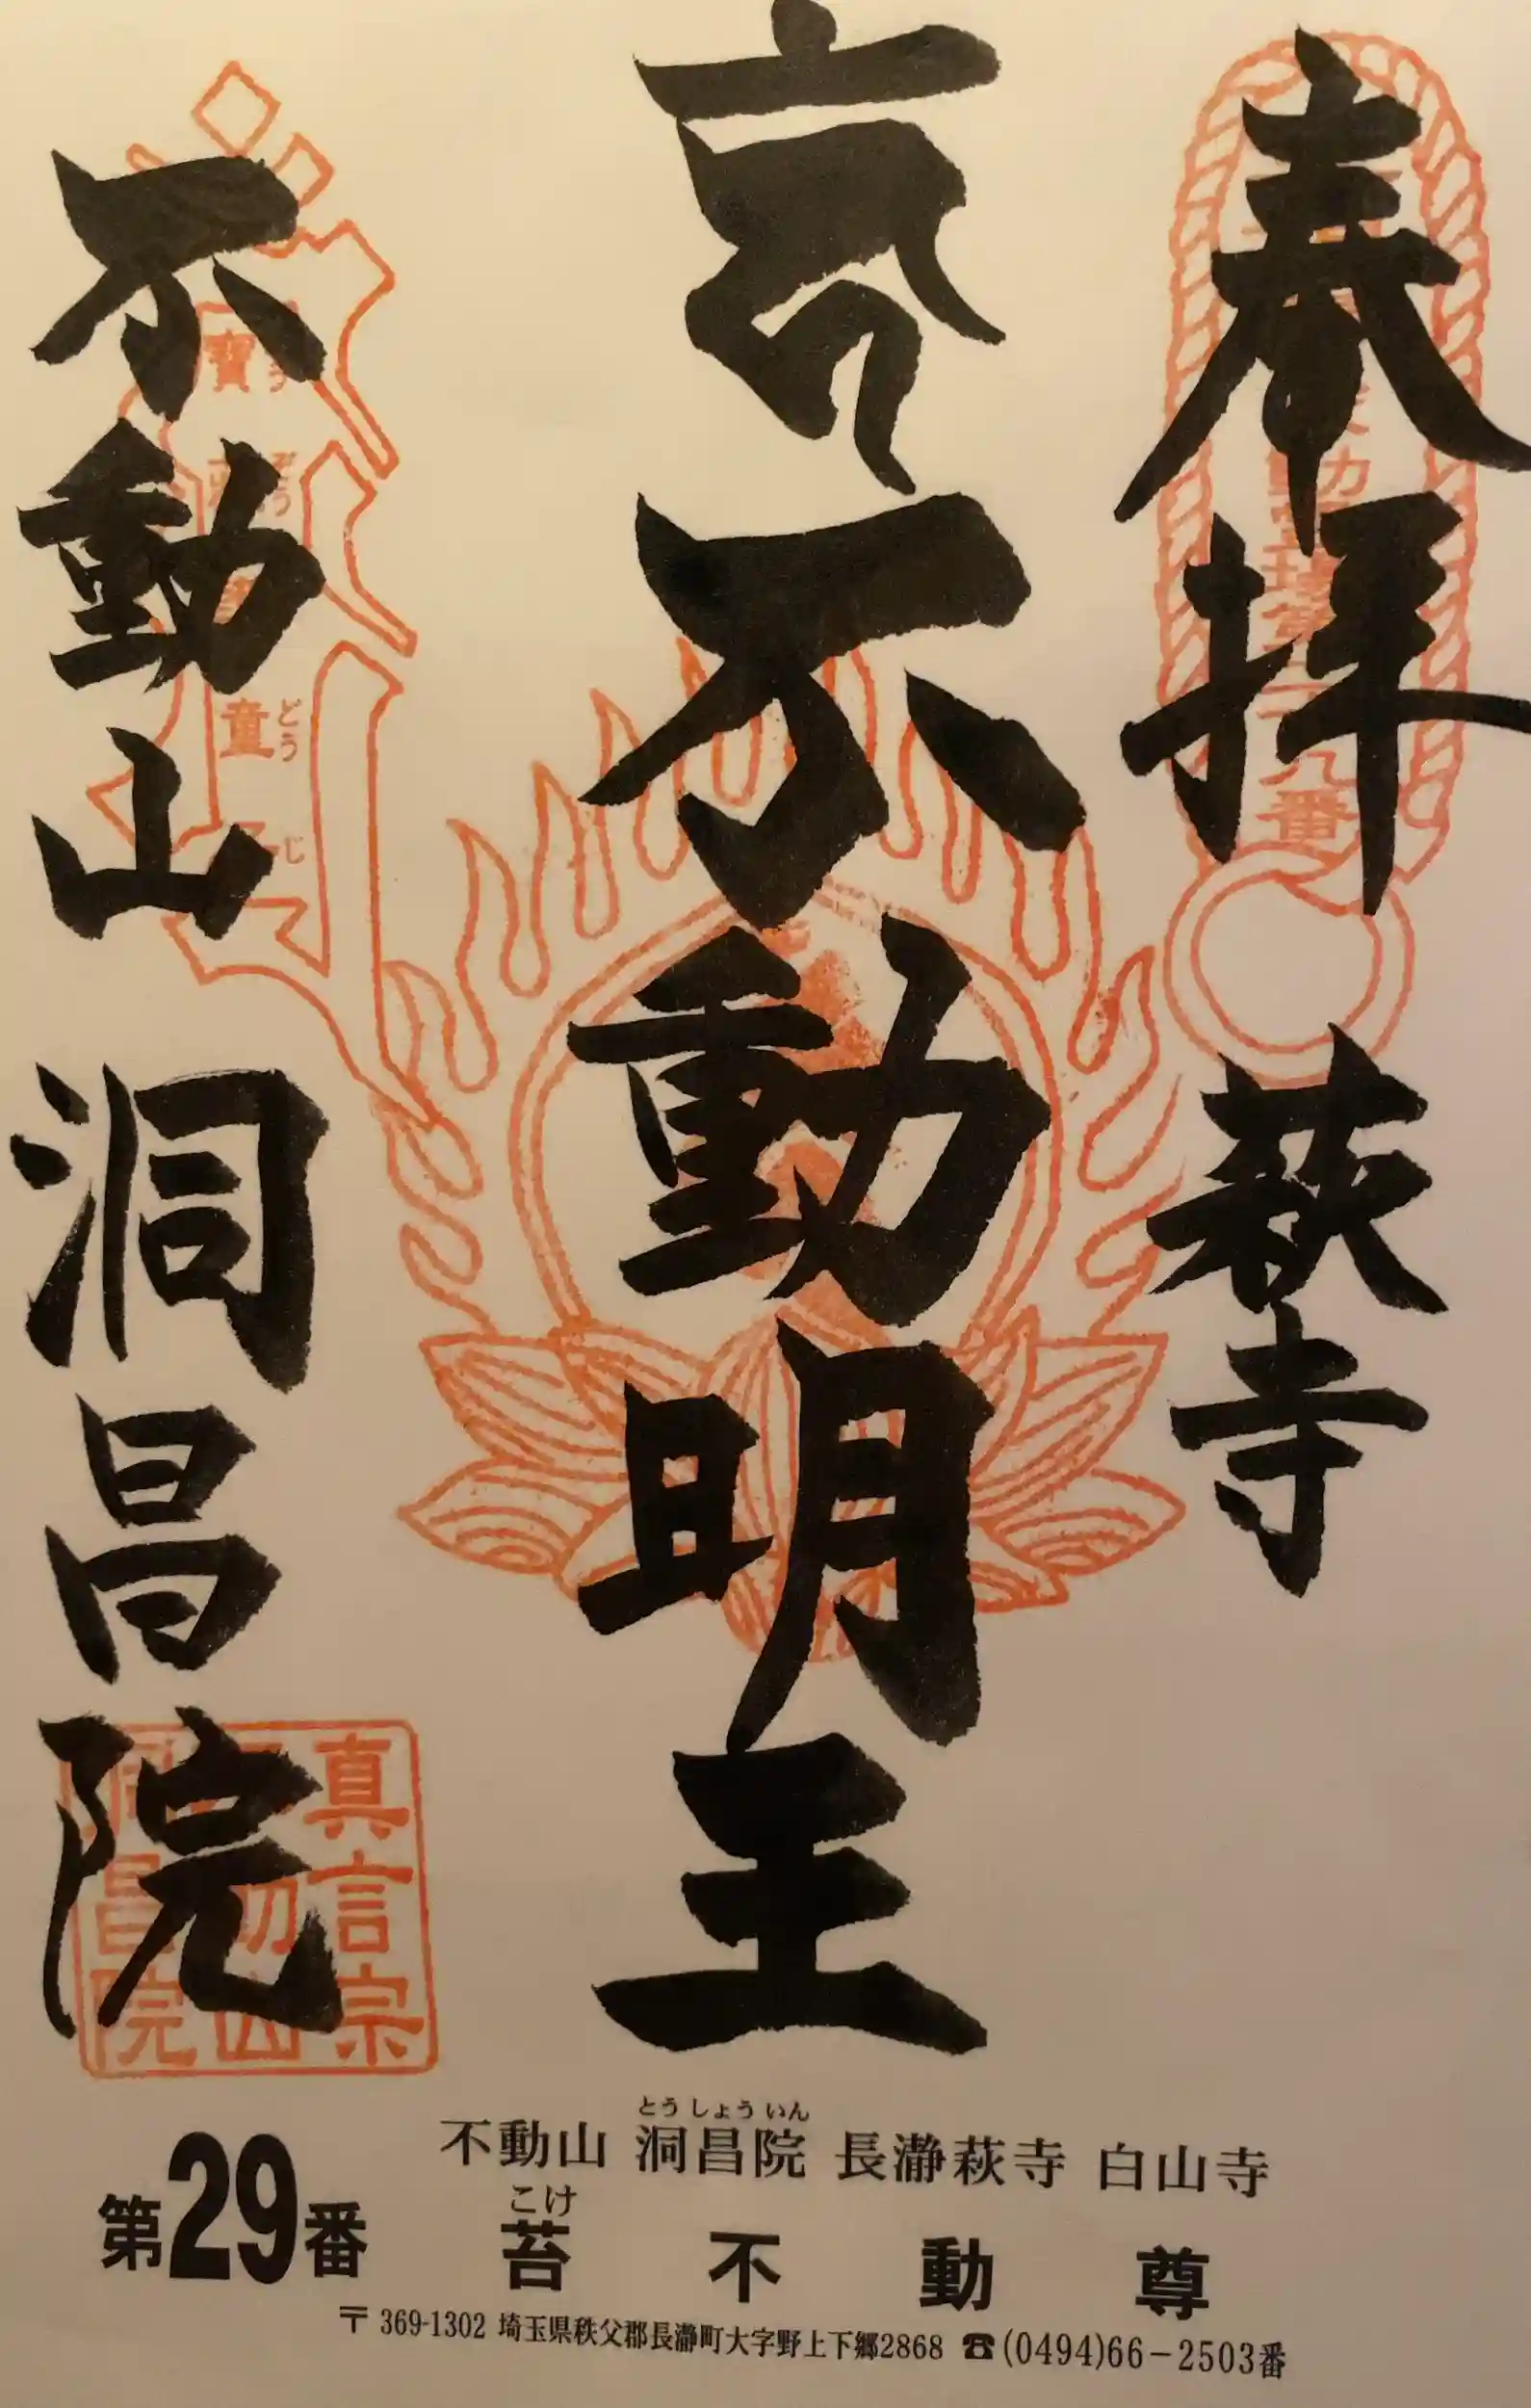 奉拝 萩寺
不動明王
不動山 洞昌院
九番
寶
童
どう
じ
真言宗
山
昌院
不動山 洞昌院 長瀞萩寺 白山寺
とうしょういん
第29番 苔不動尊
こけ
〒369-1302 埼玉県秩父郡長瀞町大字野上下郷2868 ☎(0494)66-2503番